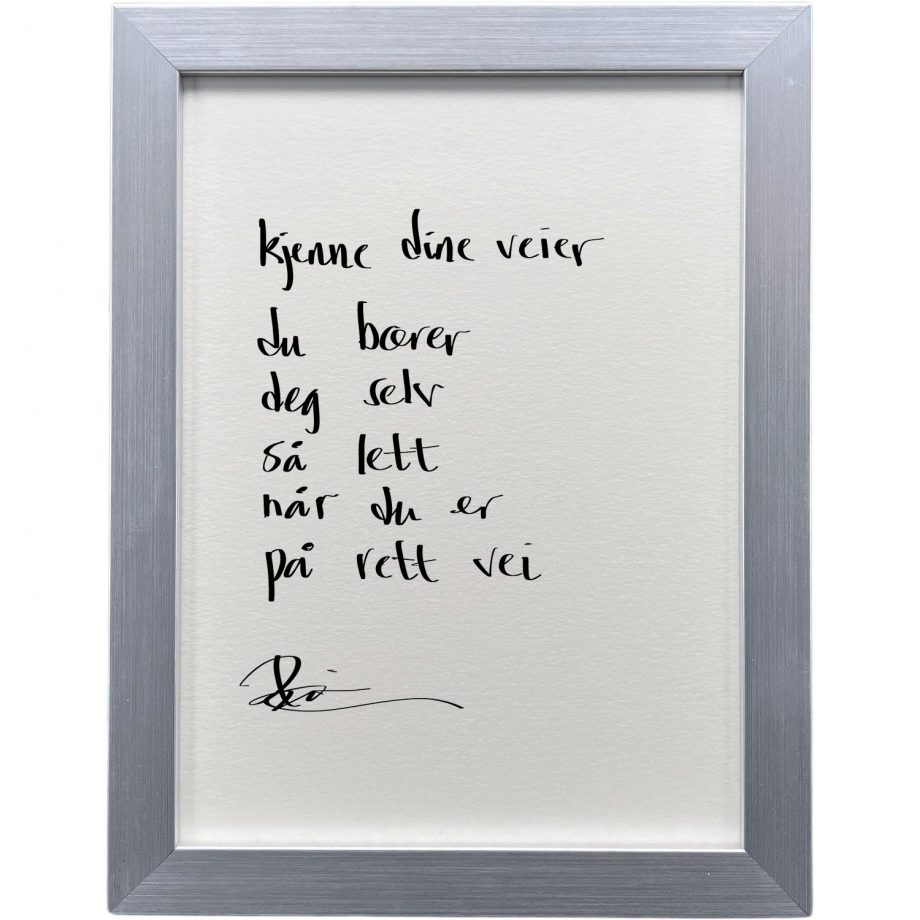 kjenne dine veier
du bærer
deg selv
så lett
når du er
på rett vei